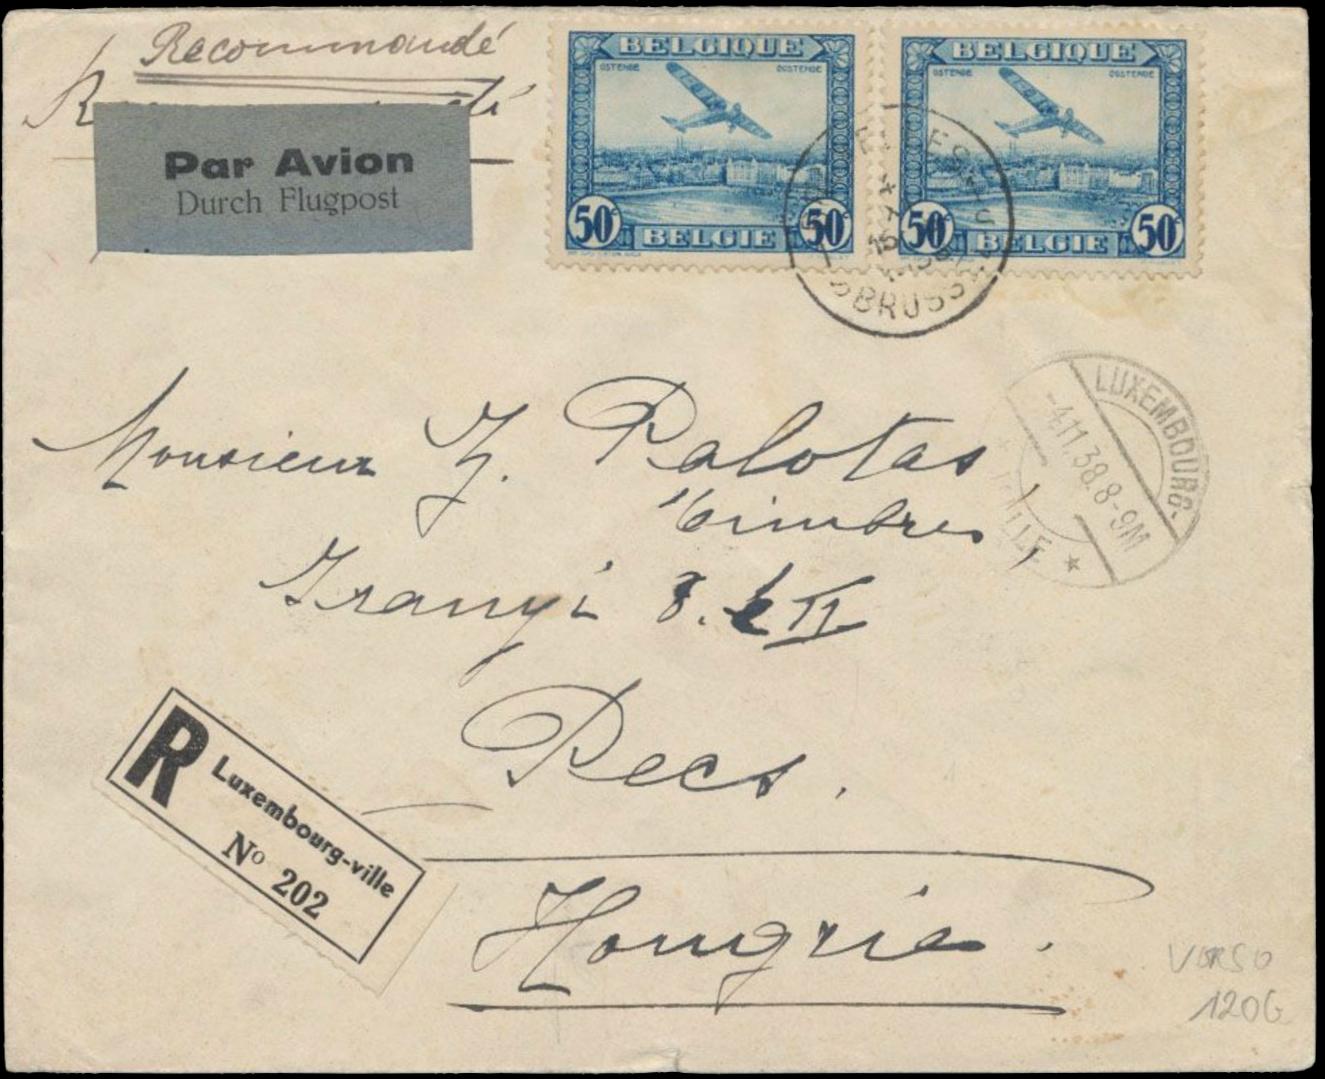 Recommandé
Par Avion
Durch Flugpost
BELGIQUE
OSTENDE OOSTENDE
50c 50c
BELGIE
BELGIQUE
OSTENDE OOSTENDE
50c 50c
BELGIE
LUXEMBOURG-
-4.11.38.8-9M
VILLE
Monsieur J. Palotas
Timbres,
Iranyi 8.
Pecs.
R
Luxembourg-ville
No 202
Hongrie.
VERSO
120G